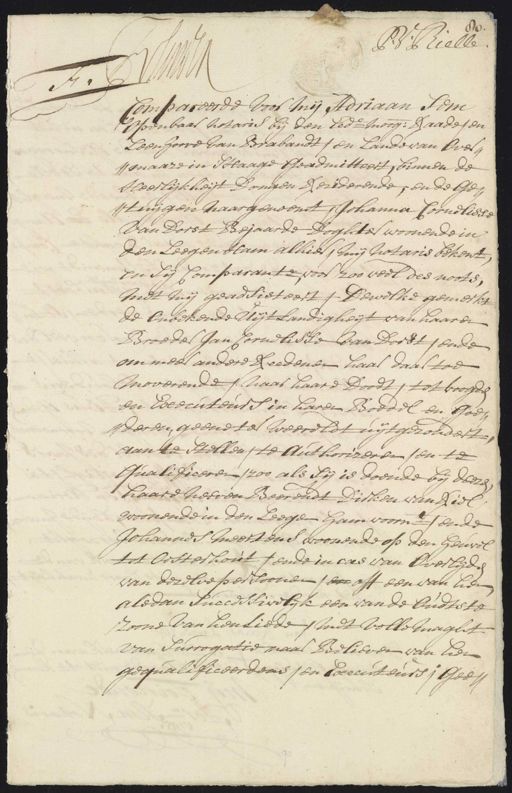 80.
P: V: Rielle.
Compareerde voor mij Adriaan Sem
Openbaar Notaris bij den Ed:e Mog: Raade, en
Leenhove van Brabandt, en Lande van Over¬
maaze in 'sHaage Geadmitteert, binnen de
Heerlijkheijt Dongen Resideerende, en de Ge¬
tuijgen naargenoemt, Johanna Cornelisse
van Dorst Bejaarde Doghter woonende in
den Leegen Ham alhier, mij Notaris bekent,
en Sij Comparante, voor zoo veel des noots,
met mij geadsisteert, Dewelke gemerkt
de Onbekende Uijtlandigheijt van haaren
Broeder Jan Cornelisse van Dorst, ende
om meer andere Reedenen haar daar toe
moveerende, naar haare Doodt, tot voogden
en Executeurs in haren Boedel en Goe¬
deren, geene ter weereldt uijtgezondert,
aan te stellen, te Authorizeren, en te
Qualificeeren, zoo als sij is doende bij deze,
haare Neeven Beerendt Dirken van Riel
woonende in den Leege Ham voorn:t, ende
Johannis Meertens woonende op den Heuvel
tot Oosterhout, ende in cas van Overlyden
van dezelve persoonen, off een van hen
alsdan Successivelijk een van de Oudtste
Zoone van hen Liede, met volle maght
van Surrogatie naar Believen van hen
gequalificeerdens, en Executeurs, Gee¬